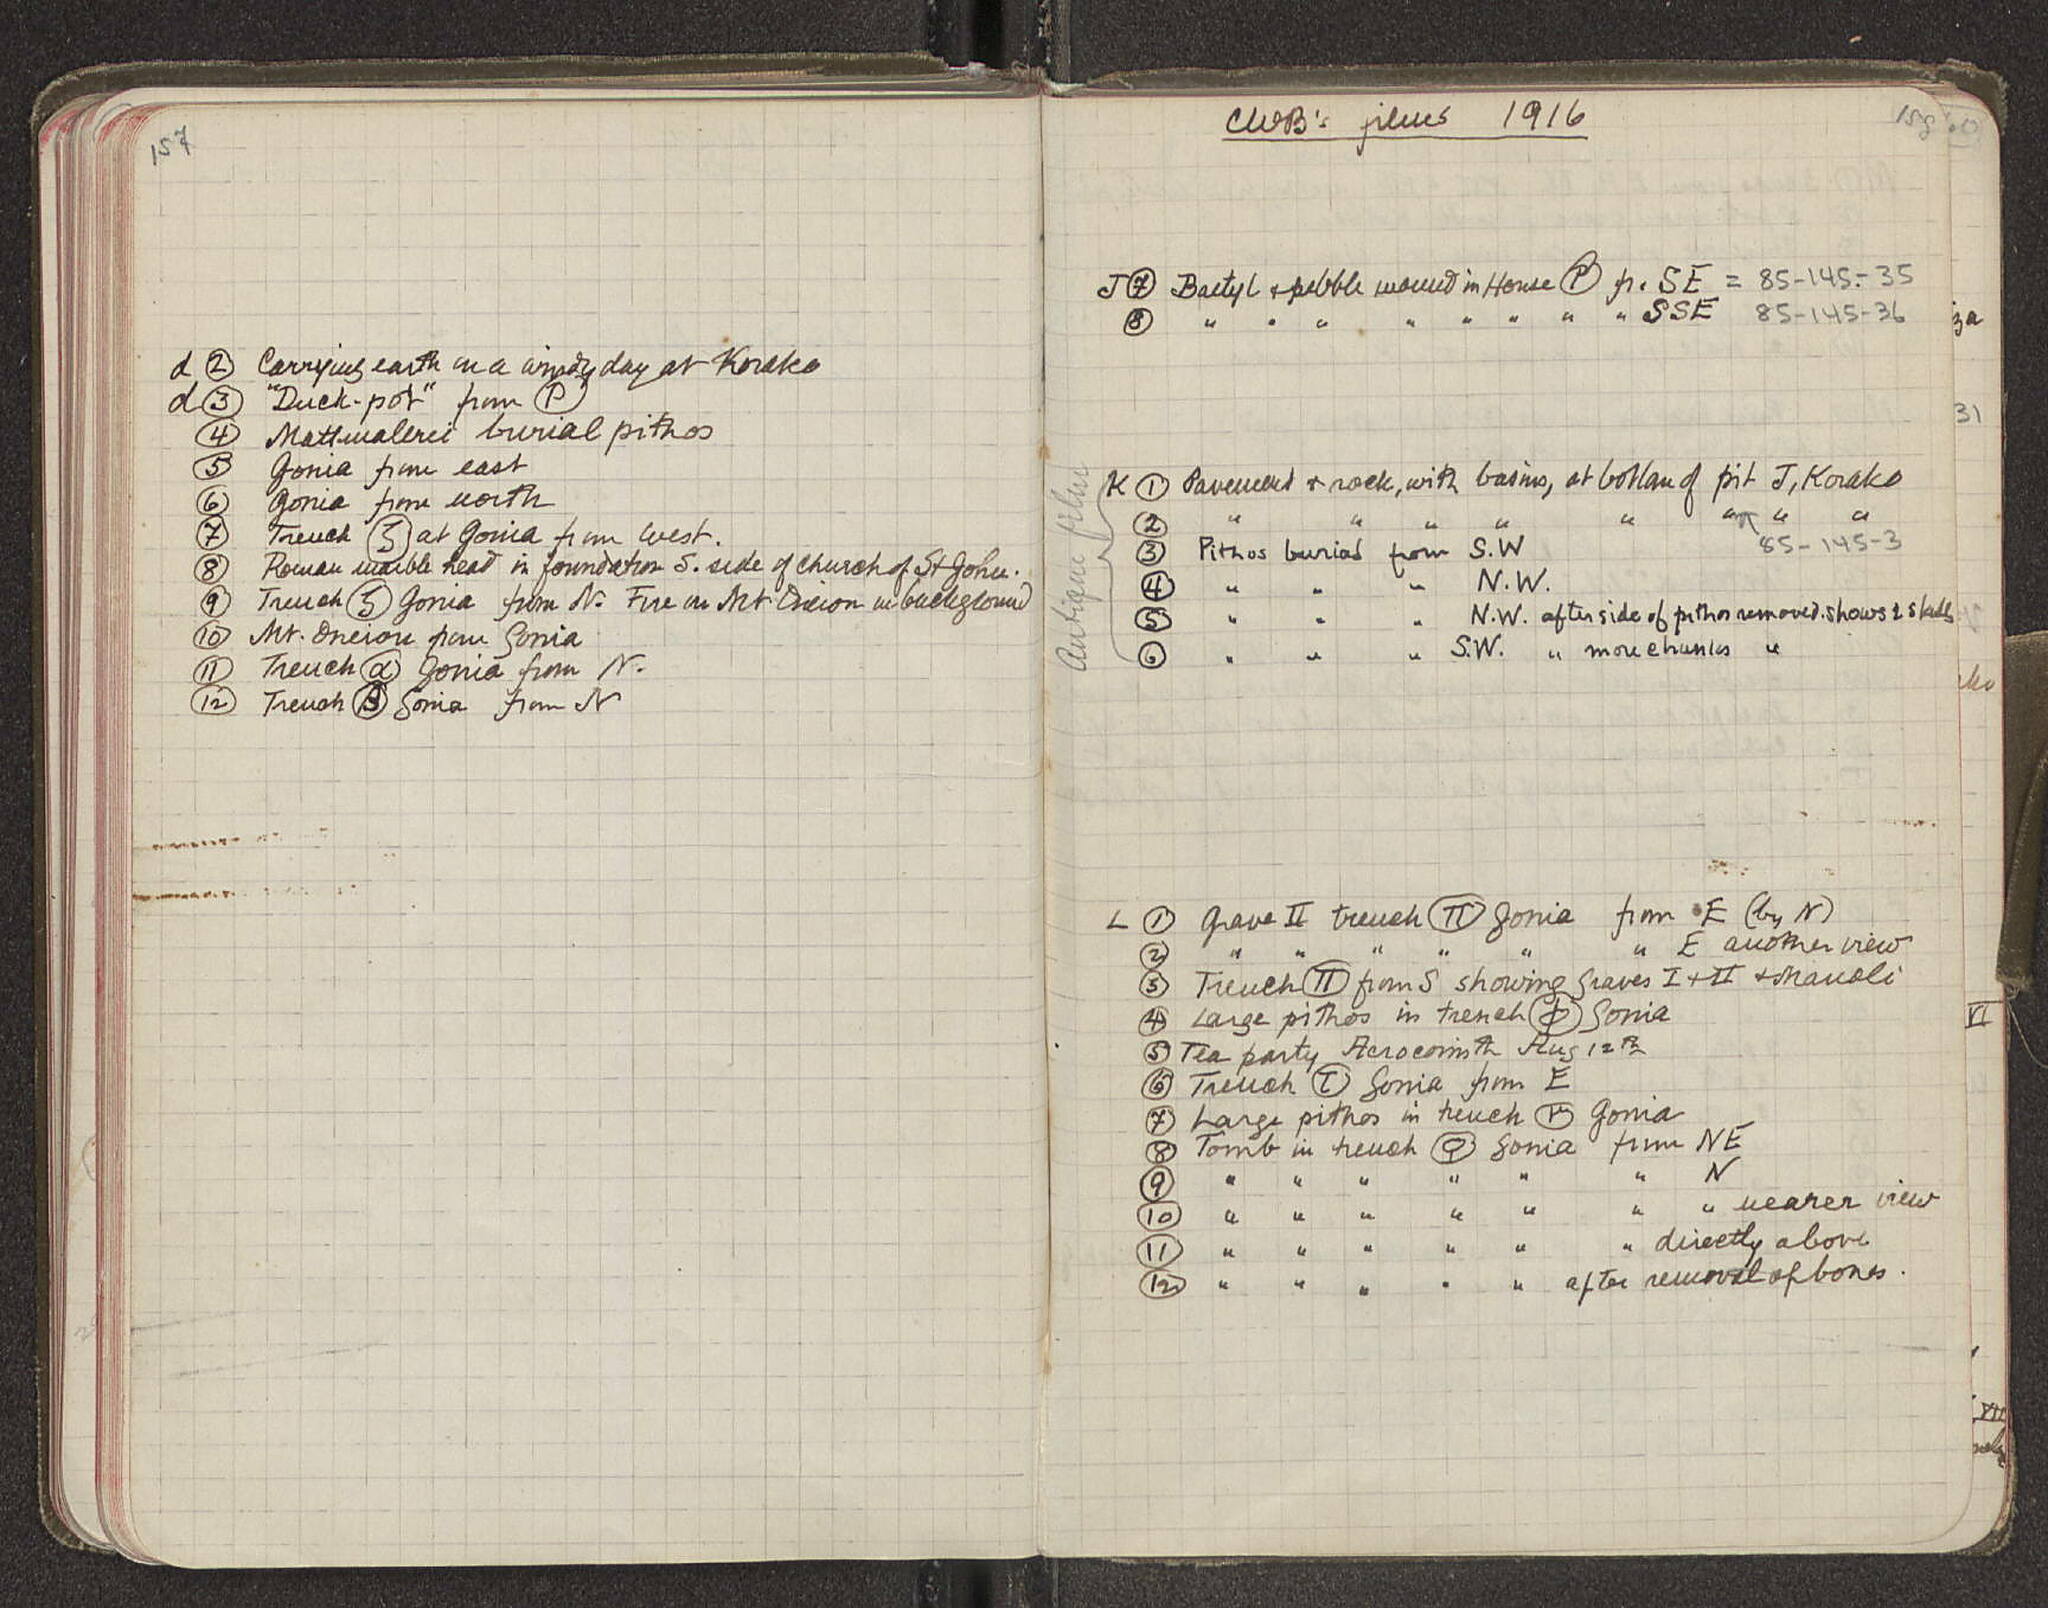 157
d ② Carrying earth on a windy day at Korako
d ③ "Duck-pot" from Ⓟ
④ Mattmalerei burial pithos
⑤ Gonia from east
⑥ Gonia from north
⑦ Trench at Gonia from west.
⑧ Roman marble head in foundation S. side of church of St John.
⑨ Trench Gonia from N. Fire on Mt Oneion in background
⑩ Mt. Oneion from Gonia
⑪ Trench (α) Gonia from N.
⑫ Trench (β) Gonia from N
CWB's films 1916
158
J ⑦ Baetyl + pebble mound in House Ⓟ fr. SE = 85-145-35
⑧ " " " " " " " " SSE 85-145-36
Antique films
K ① Pavement + rock, with basins, at bottom of pit J, Korako
② " " " " " " " "
③ Pithos burial from S.W 85-145-3
④ " " " N.W.
⑤ " " " N.W. after side of pithos removed. shows 2 skulls
⑥ " " " S.W. " more chunks "
L ① Grave II trench (Π) Gonia from E (by N)
② " " " " " " E another view
③ Trench (Π) from S showing graves I + II + Manoli
④ Large pithos in trench (φ) Gonia
⑤ Tea party Acrocorinth Aug 12th
⑥ Trench Gonia from E
⑦ Large pithos in trench Gonia
⑧ Tomb in trench Gonia from NE
⑨ " " " " " " N
⑩ " " " " " " " nearer view
⑪ " " " " " " directly above
⑫ " " " " " after removal of bones.
za
31
ko
VI
VII